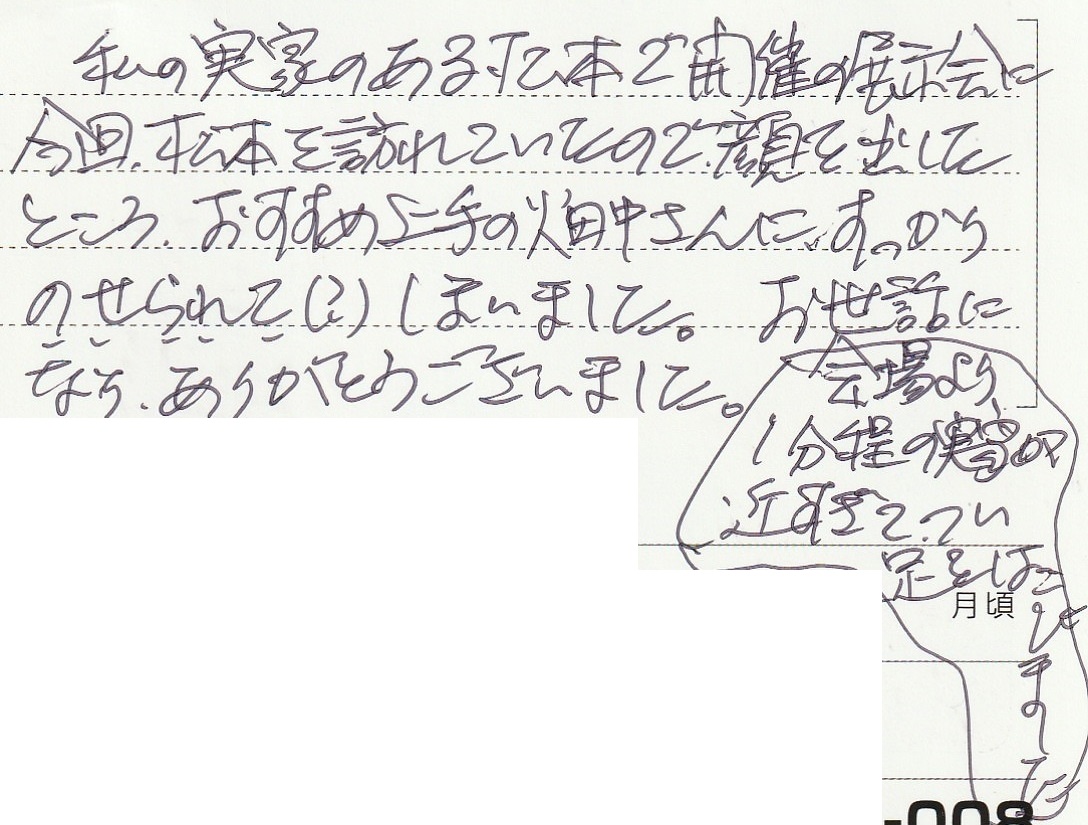 私の実家のある松本で開催の展示会に
今回、松本を訪れていたので、顔を出した
ところ、おすすめ上手の畑中さんに、すっかり
のせられて(?)しまいました。 お世話に
なり、ありがとうございました。
会場より、
1分程の実家
近すぎて、つい
足をはこび
ました
月頃
-008